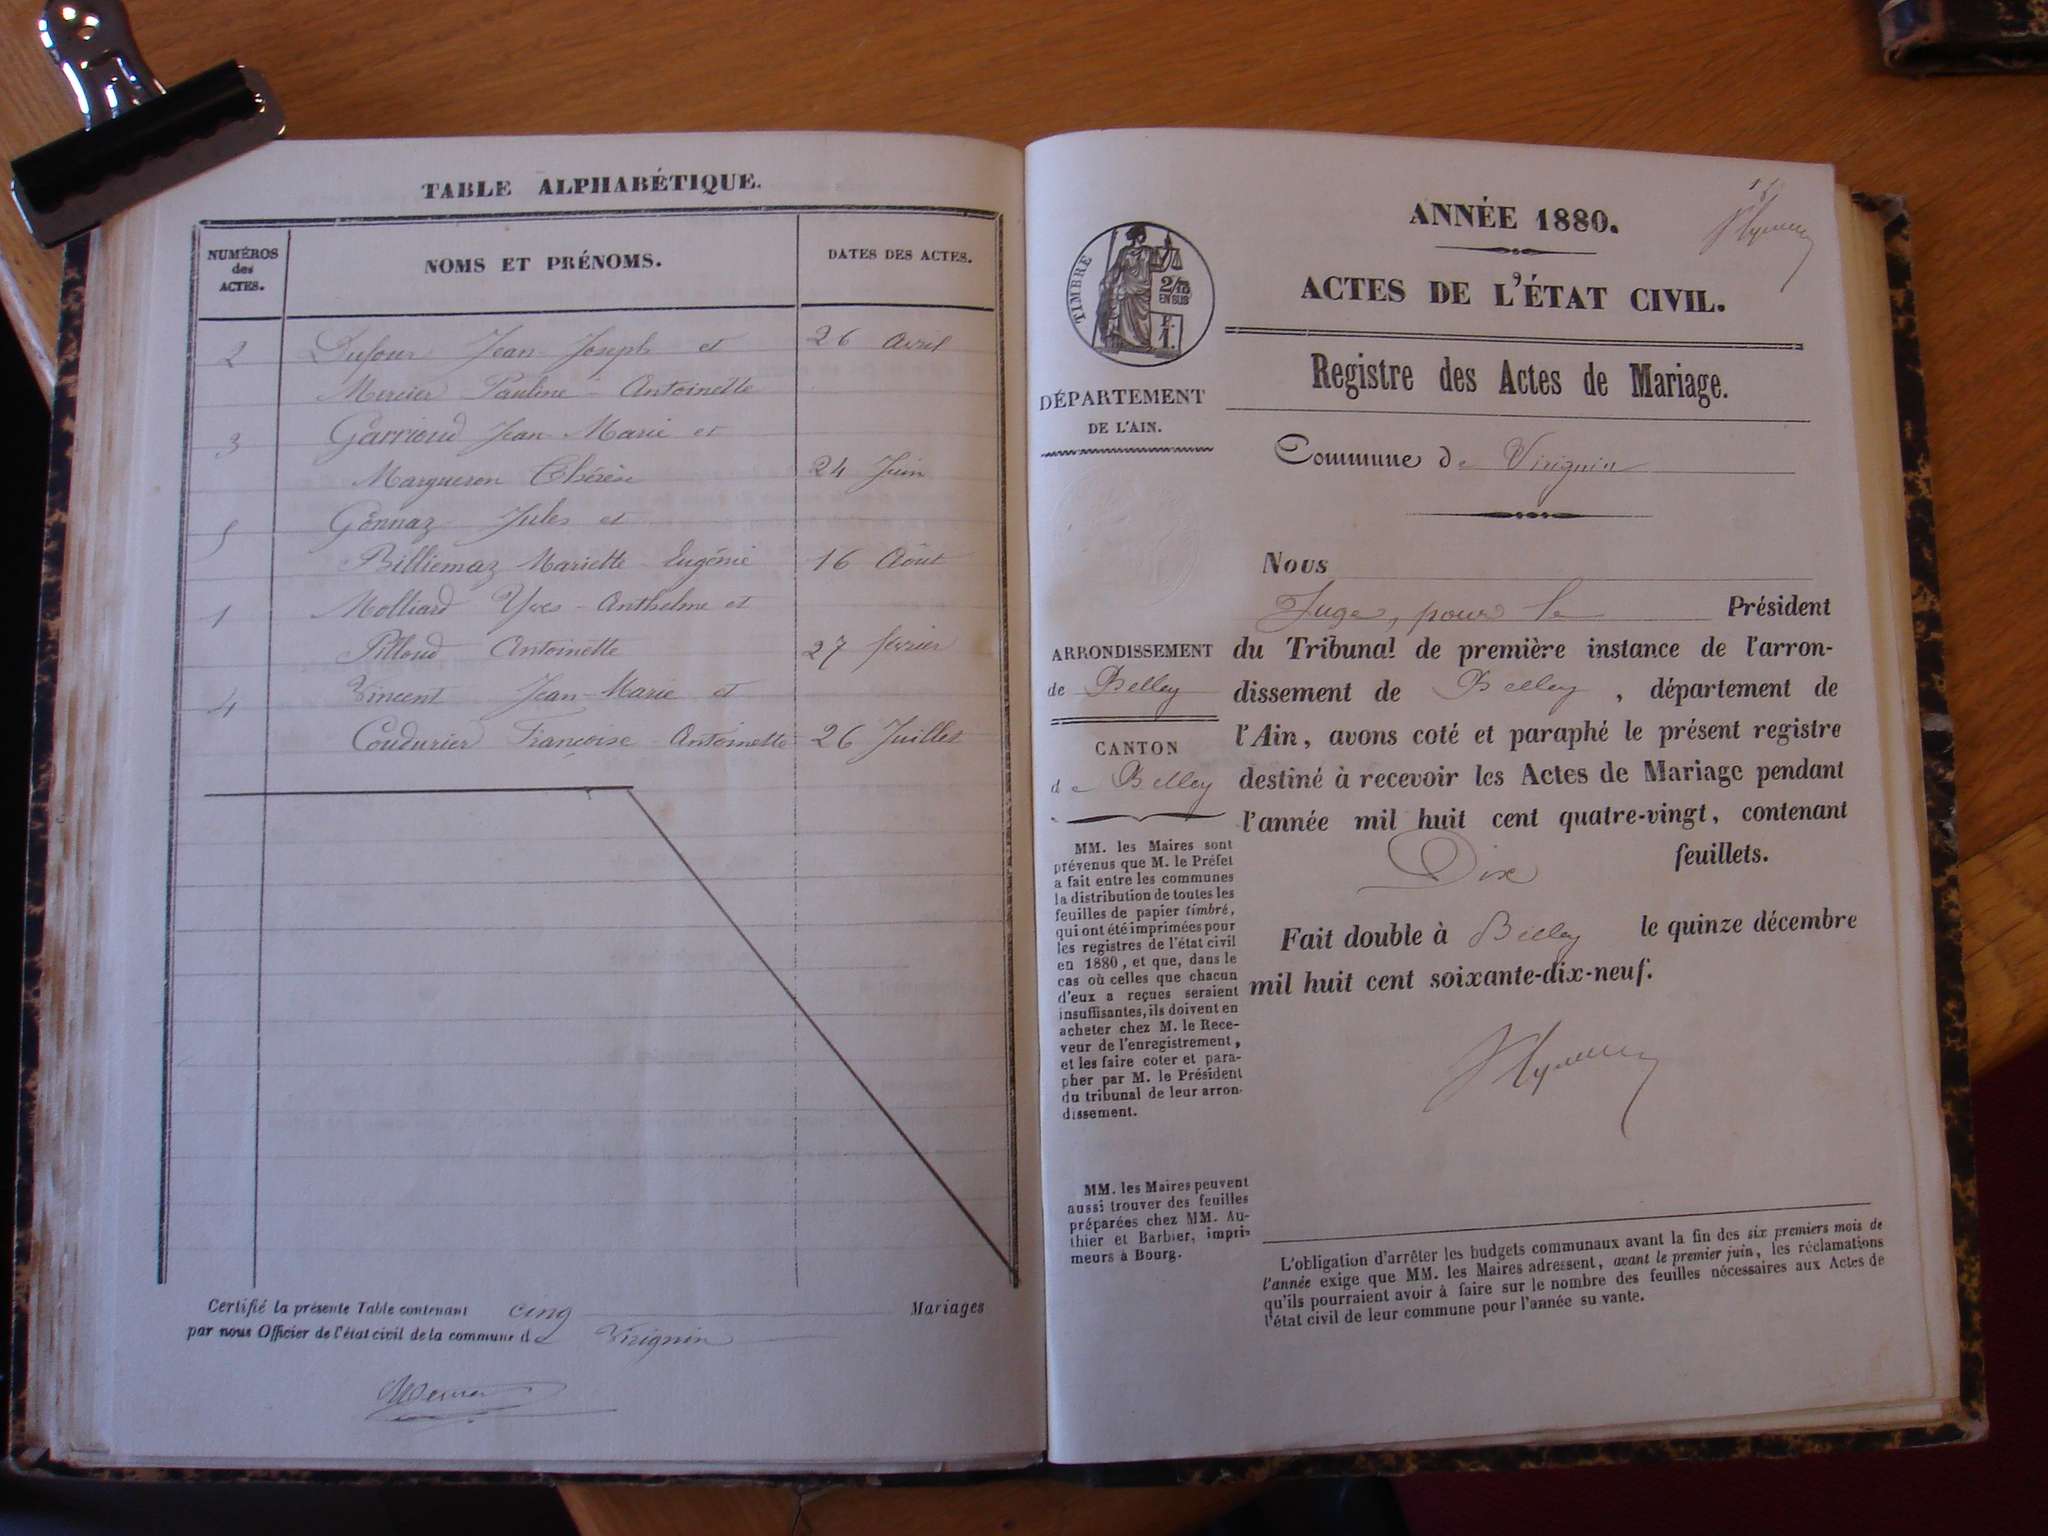 TABLE ALPHABÉTIQUE.
NUMÉROS
des
ACTES.
NOMS ET PRÉNOMS.
DATES DES ACTES.
2 Dufour Jean-Joseph et 26 avril
Mercier Pauline-Antoinette
3 Garrioud Jean-Marie et
Margueron Thérèse 24 Juin
5 Gonnaz Jules et
Billiemaz Mariette-Eugénie 16 Août
1 Molliard Yves-Anthelme et
Pilloud Antoinette 27 février
4 Vincent Jean-Marie et
Coudurier Françoise-Antoinette 26 Juillet
Certifié la présente Table contenant cinq Mariages
par nous Officier de l'état civil de la commune de Virignin
ANNÉE 1880.
ACTES DE L'ÉTAT CIVIL.
TIMBRE
2/10
EN SUS
F.
1.
Registre des Actes de Mariage.
DÉPARTEMENT
DE L'AIN.
Commune de Virignin
Nous
Juge, pour le Président
du Tribunal de première instance de l'arron-
dissement de Belley, département de
l'Ain, avons coté et paraphé le présent registre
destiné à recevoir les Actes de Mariage pendant
l'année mil huit cent quatre-vingt, contenant
Dix feuillets.
Fait double à Belley le quinze décembre
mil huit cent soixante-dix-neuf.
ARRONDISSEMENT
de Belley
CANTON
de Belley
MM. les Maires sont
prévenus que M. le Préfet
a fait entre les communes
la distribution de toutes les
feuilles de papier timbré,
qui ont été imprimées pour
les registres de l'état civil
en 1880, et que, dans le
cas où celles que chacun
d'eux a reçues seraient
insuffisantes, ils doivent en
acheter chez M. le Rece-
veur de l'enregistrement,
et les faire coter et para-
pher par M. le Président
du tribunal de leur arron-
dissement.
MM. les Maires peuvent
aussi trouver des feuilles
préparées chez MM. Au-
thier et Barbier, impri-
meurs à Bourg.
L'obligation d'arrêter les budgets communaux avant la fin des six premiers mois de
l'année exige que MM. les Maires adressent, avant le premier juin, les réclamations
qu'ils pourraient avoir à faire sur le nombre des feuilles nécessaires aux Actes de
l'état civil de leur commune pour l'année su vante.